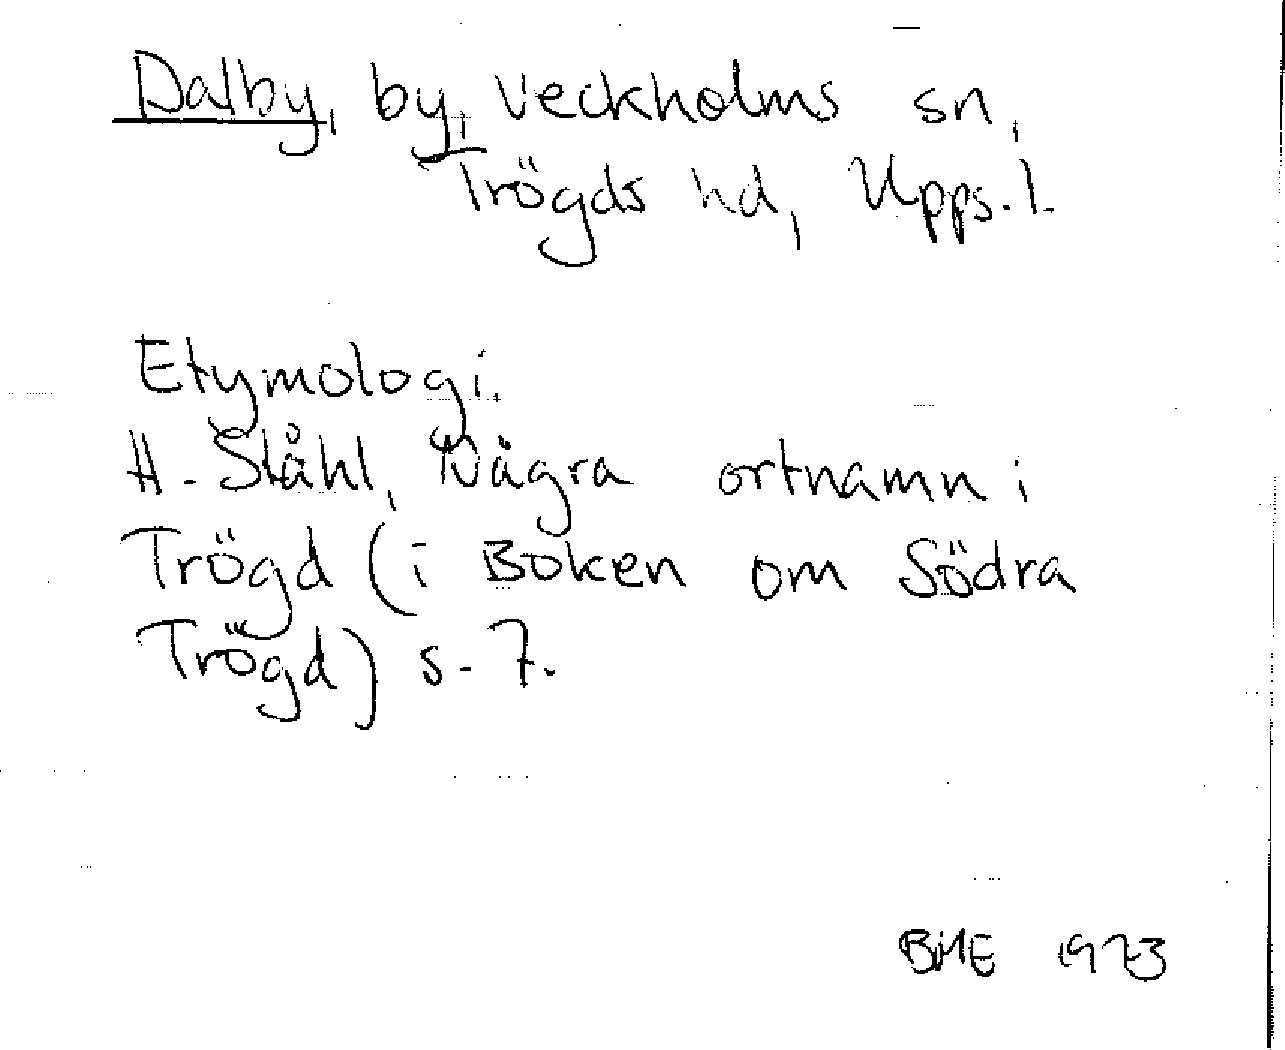 Dalby, by, Veckholms sn,
Trögds hd, Upps. l.
Etymologi.
H. Ståhl, Några ortnamn i
Trögd (i Boken om Södra
Trögd) s. 7.
BME 1973